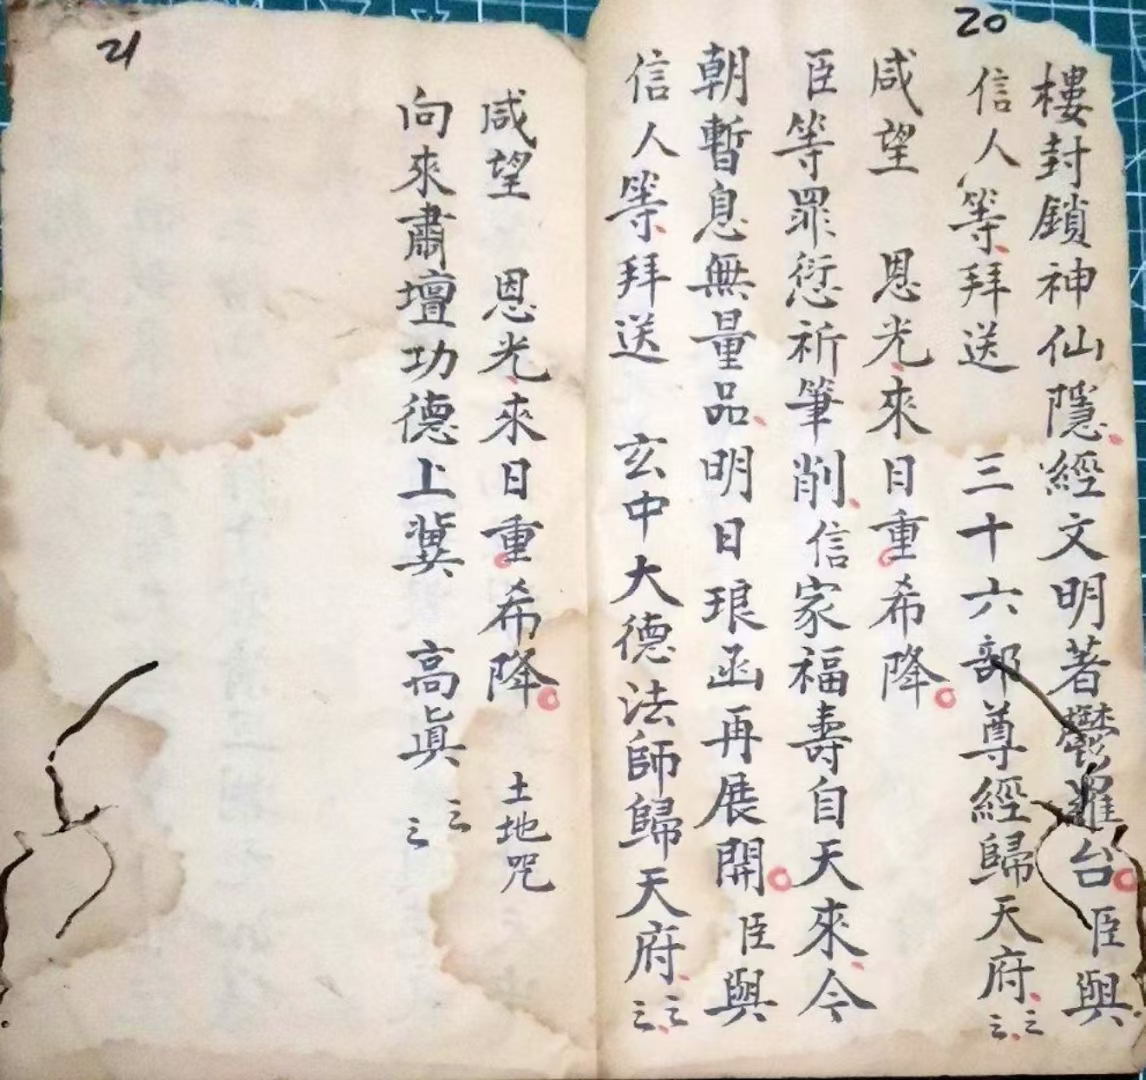 20
樓封鎖神仙隱經文明著鬱羅台臣與
信人等拜送 三十六部尊經歸天府
咸望 恩光來日重希降
臣等罪愆祈筆削信家福壽自天來今
朝暫息無量品明日琅函再展開臣與
信人等拜送 玄中大德法師歸天府
21
咸望 恩光來日重希降 土地咒
向來肅壇功德上冀 高眞